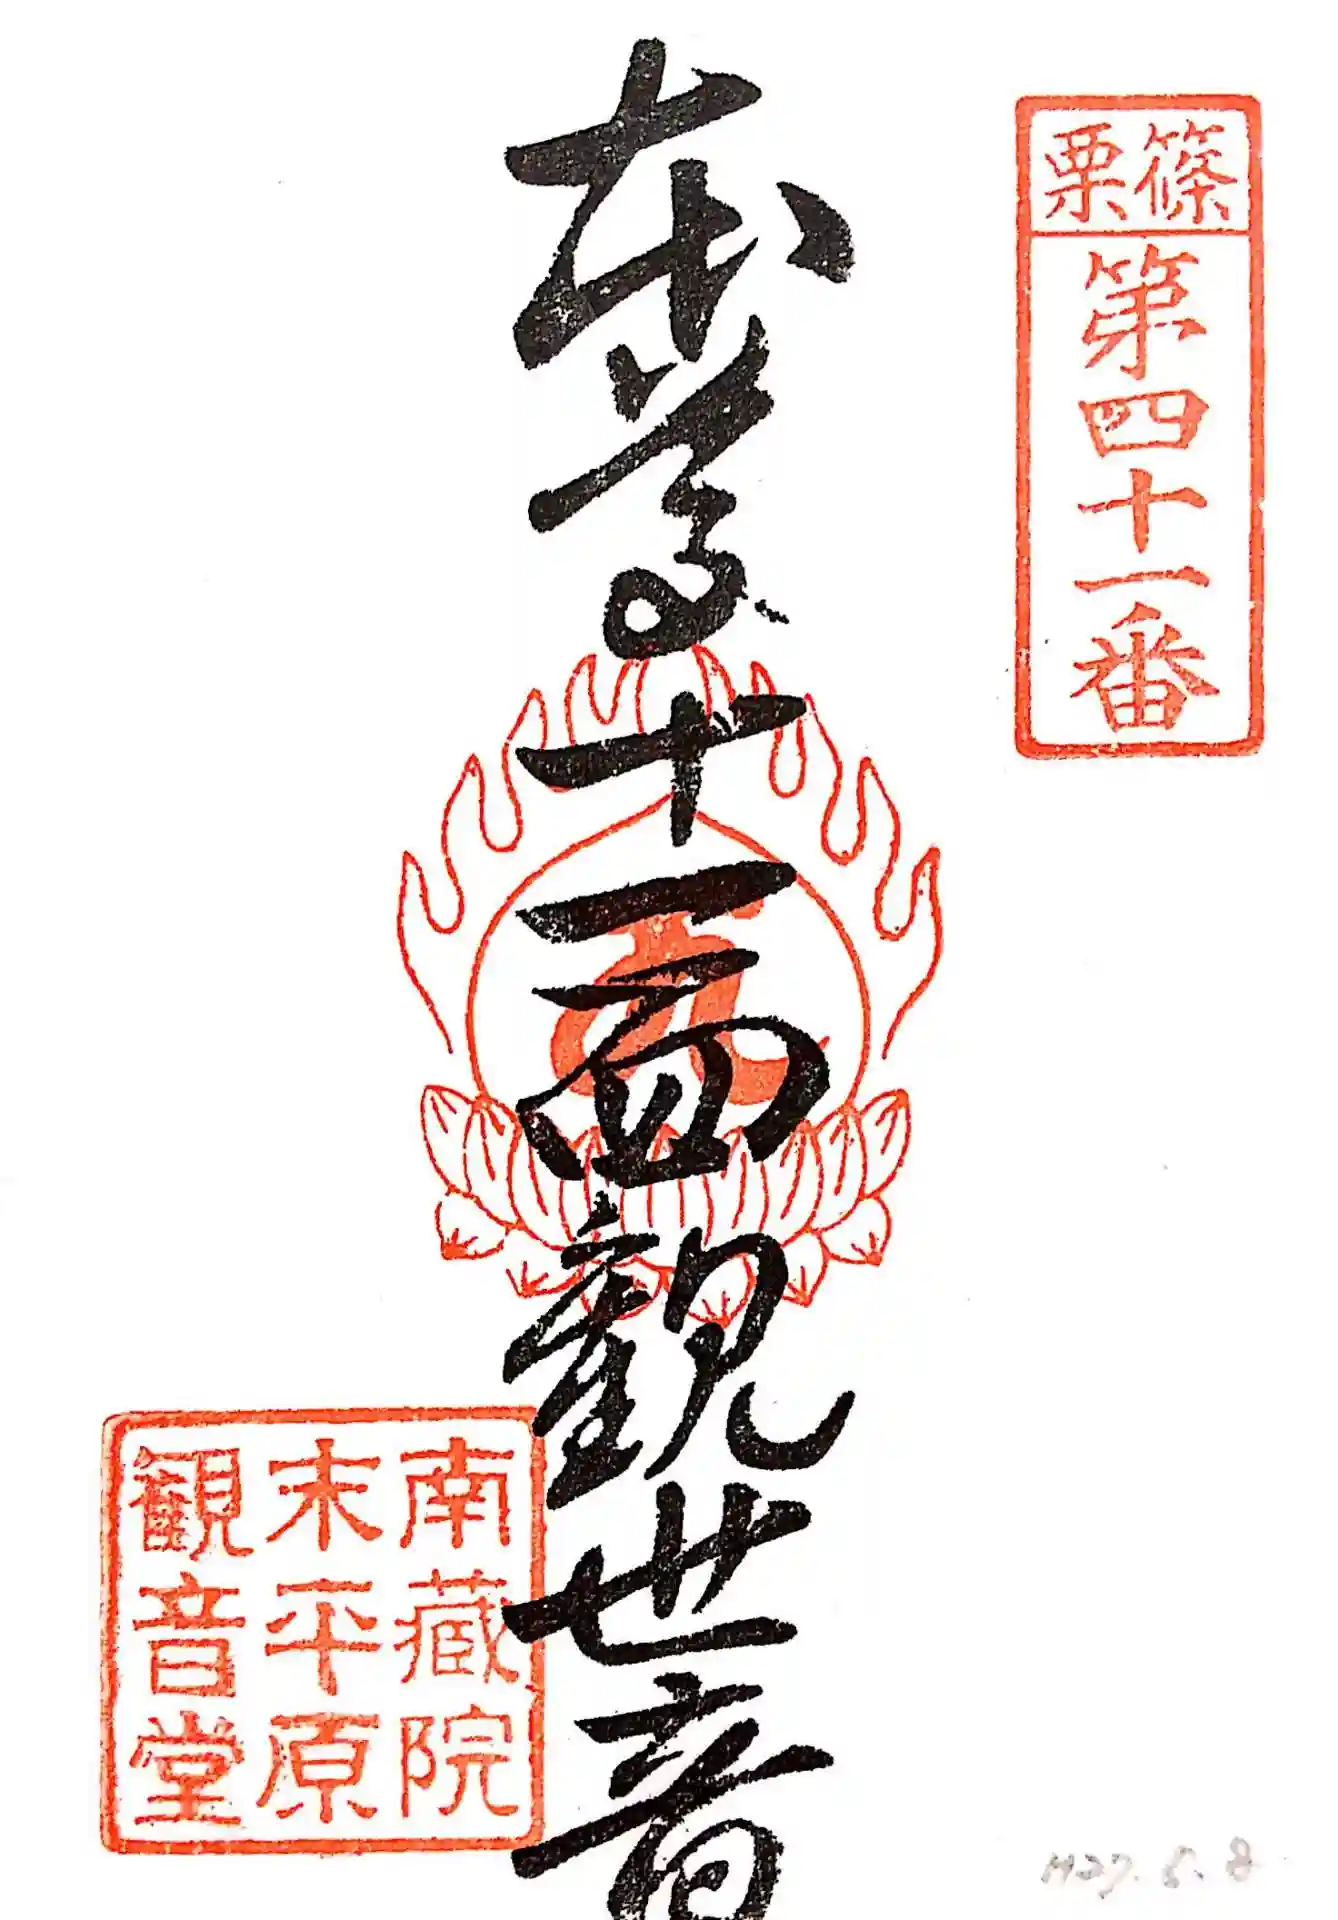 篠栗
第四十一番
本尊十一面観世音
南蔵院
末平原
観音堂
H27.5.8